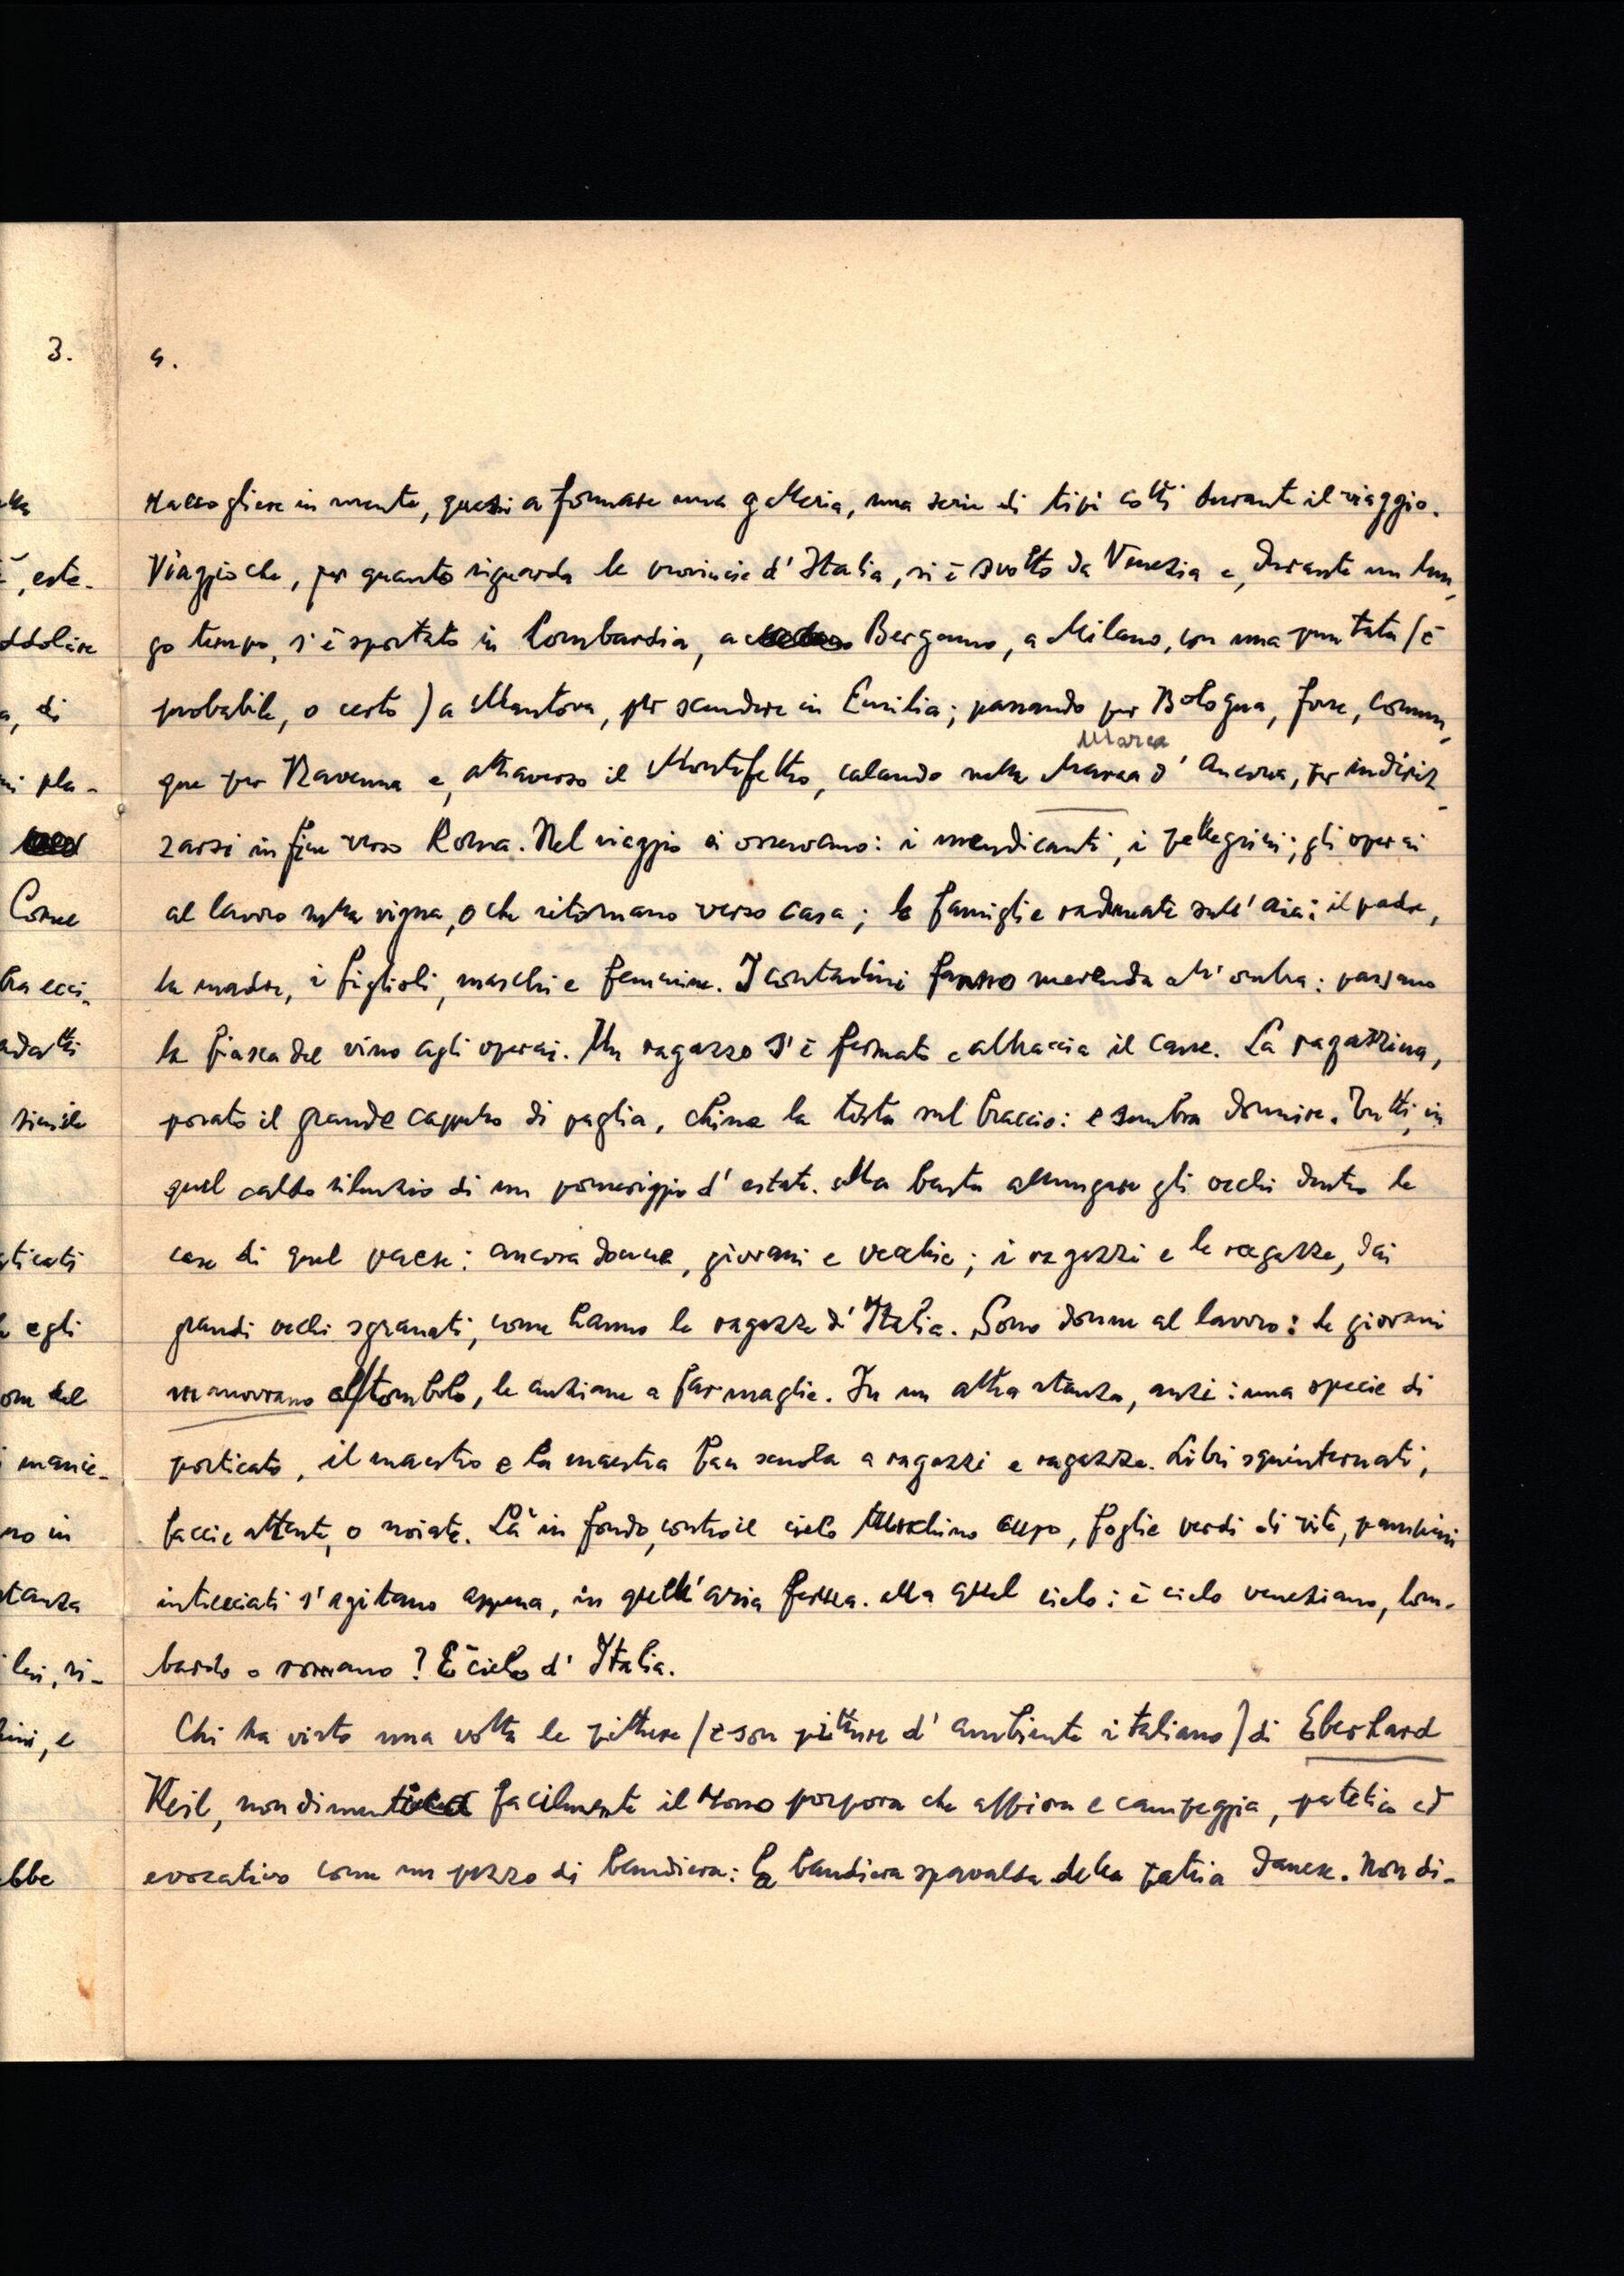 3.
4.
Raccogliere in mente, quasi a formare una galleria, una serie di tipi colti durante il viaggio.
Viaggio che, per quanto riguarda le provincie d'Italia, si è svolto da Venezia e, durante un lun-
go tempo, s'è spostato in Lombardia, a Bergamo, a Milano, con una puntata (è
probabile, o certo) a Mantova, per scendere in Emilia; passando per Bologna, forse, comun-
Marca
que per Ravenna e, attraverso il Montefeltro, calando nella Marca d'Ancona, per indiriz-
zarsi in fine verso Roma. Nel viaggio si osservano: i mendicanti, i pellegrini; gli operai
al lavoro nella vigna, o che ritornano verso casa; le famiglie radunate sull'aia: il padre,
la madre, i figlioli, maschi e femmine. I contadini fanno merenda all'ombra: passano
la fiasca del vino agli operai. Un ragazzo s'è fermato e abbraccia il cane. La ragazzina,
posato il grande cappello di paglia, china la testa sul braccio: e sembra dormire. Tutti, in
quel caldo silenzio di un pomeriggio d'estate. Ma basta allungare gli occhi dentro le
case di quel paese: ancora donne, giovani e vecchie; i ragazzi e le ragazze, dai
grandi occhi sgranati, come hanno le ragazze d'Italia. Sono donne al lavoro: le giovani
manovrano al tombolo, le anziane a far maglie. In un altra stanza, anzi: una specie di
porticato, il maestro e la maestra fan scuola a ragazzi e ragazze. Libri squinternati,
faccie attente, o noiate. Là in fondo, contro il cielo turchino cupo, foglie verdi di vite, pampini
intrecciati s'agitano appena, in quell'aria ferma. Ma quel cielo: è cielo veneziano, lom-
bardo o romano? È cielo d'Italia.
Chi ha visto una volta le pitture (e son pitture d'ambiente italiano) di Eberhard
Keil, non dimentica facilmente il rosso porpora che affiora e campeggia, patetico ed
evocativo come un pezzo di bandiera: la bandiera spavalda della patria danese. Non di-